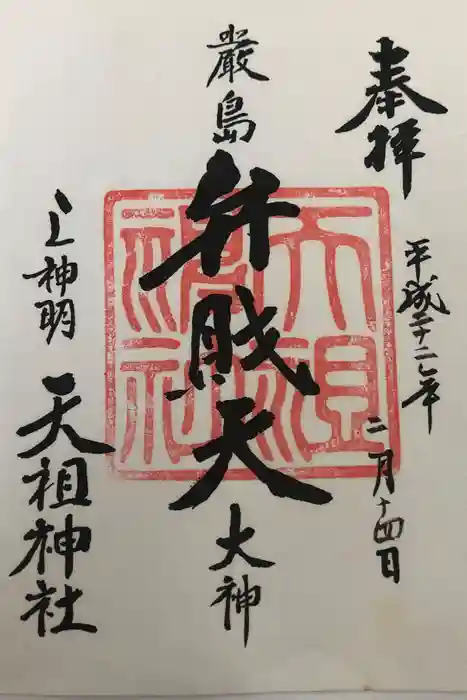 奉拝
平成二十二年
二月十四日
厳島
弁財天
大神
上神明
天祖神社